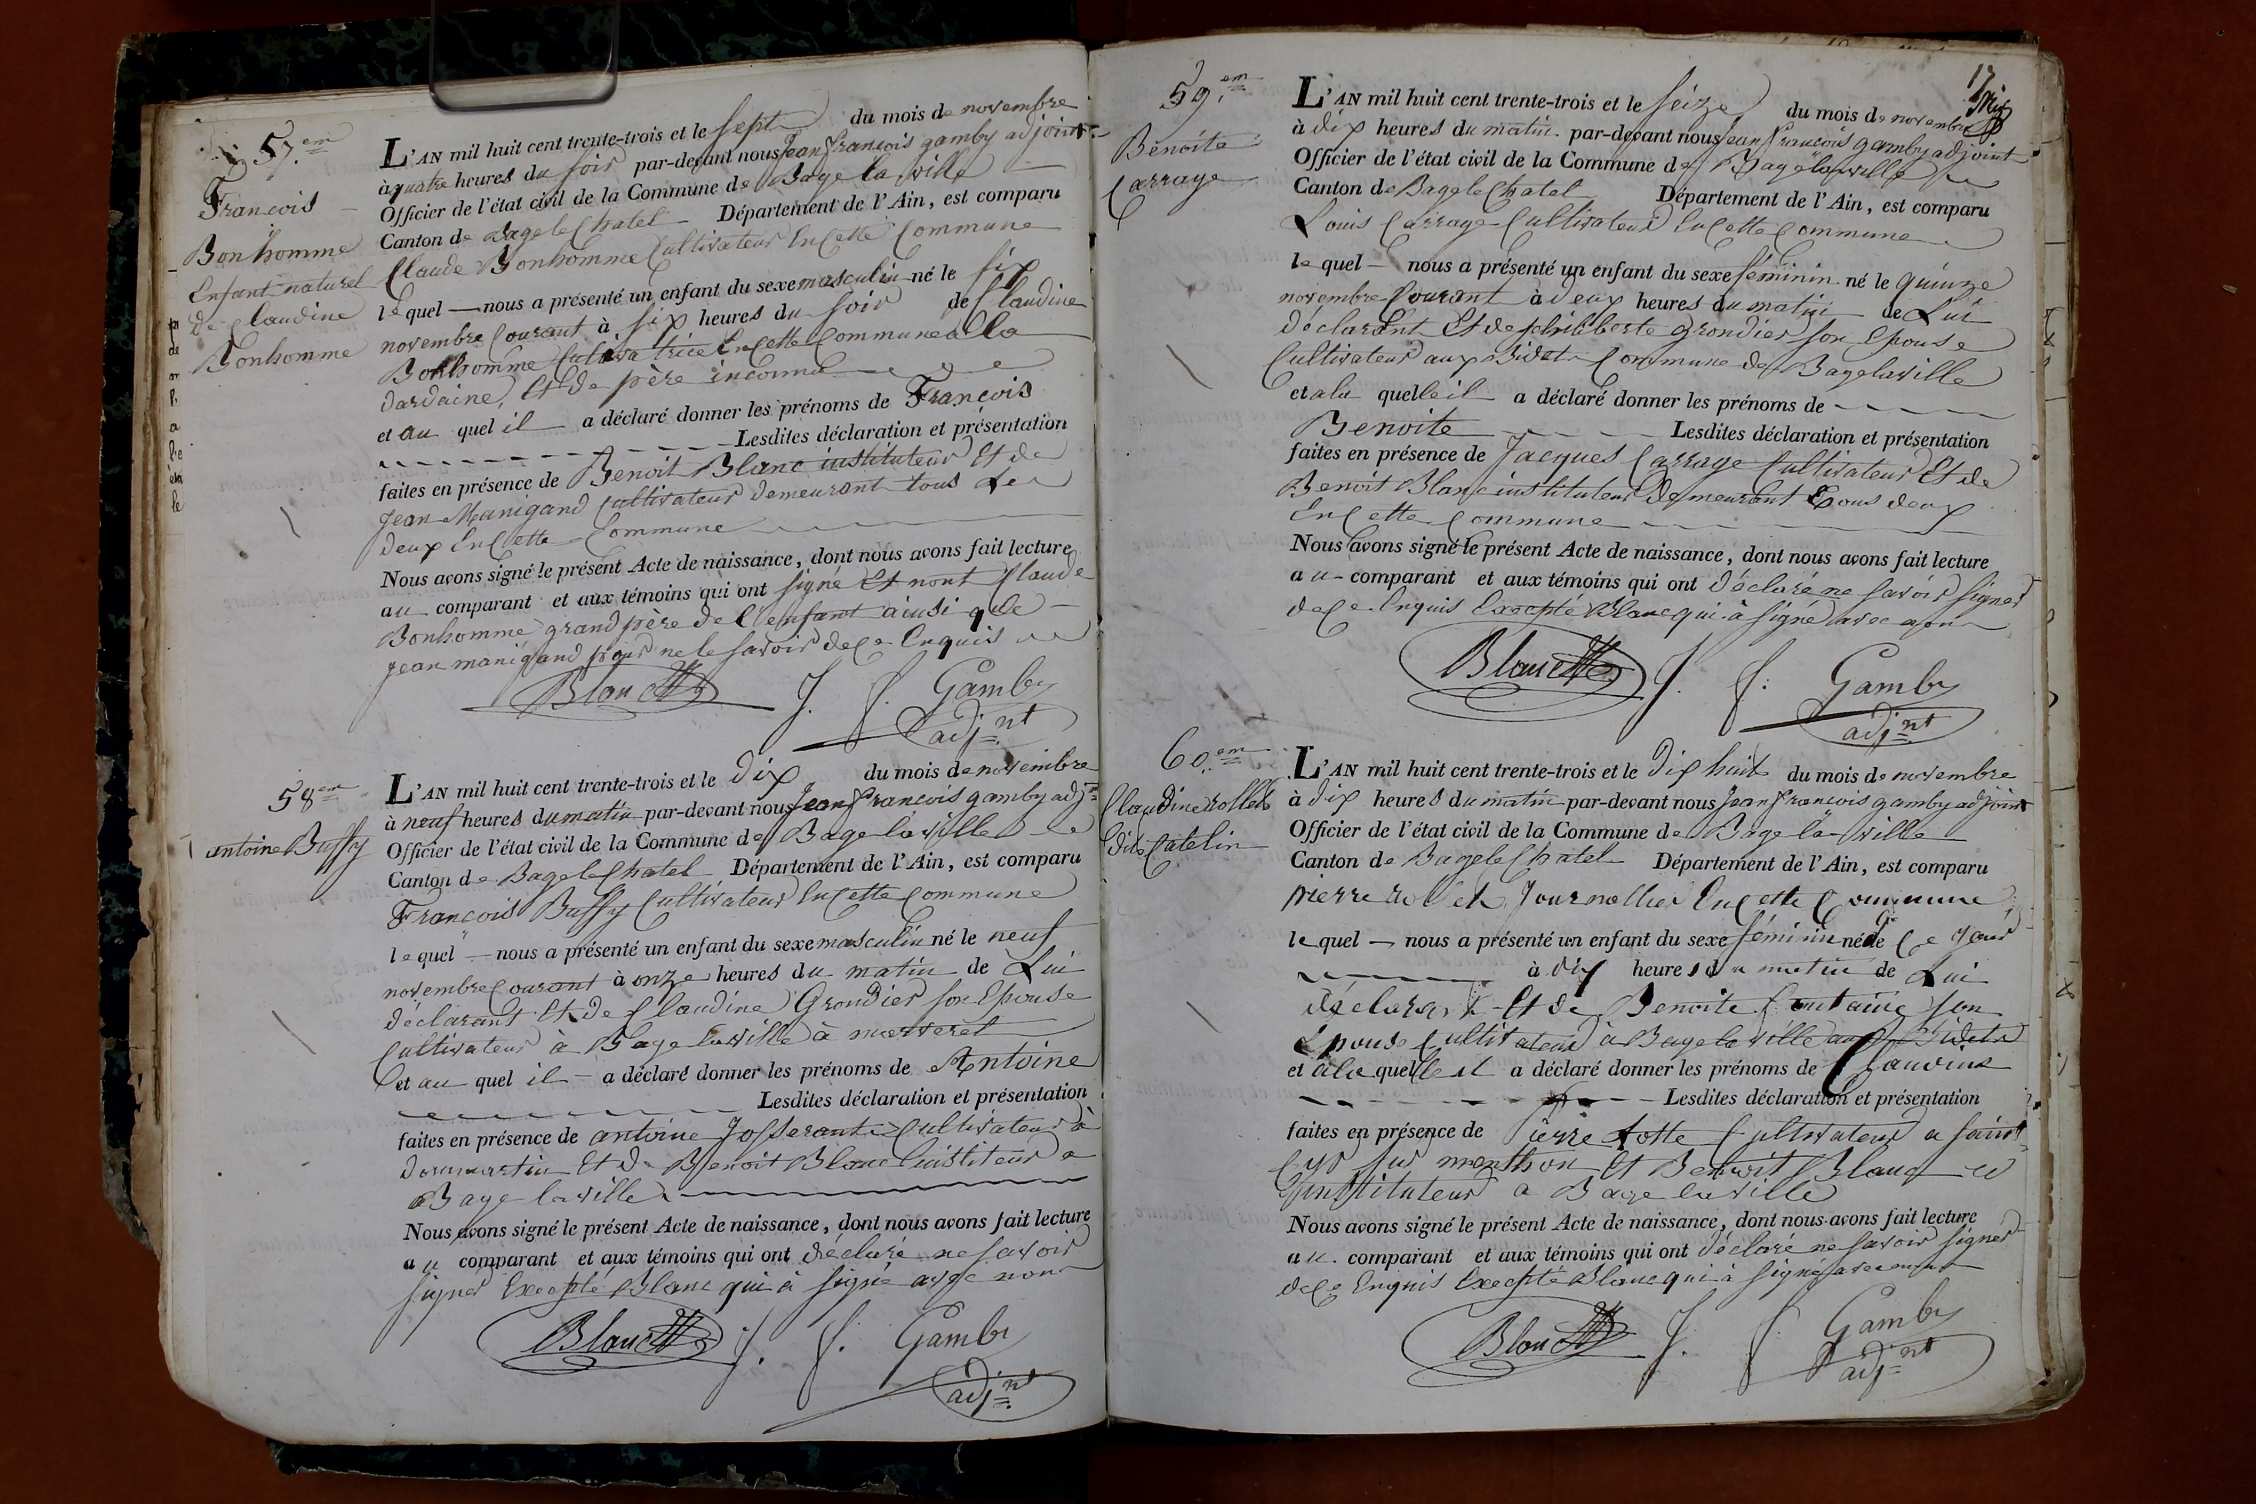 57.em
François
Bonhomme
Enfant naturel
de Claudine
Bonhomme
L'AN mil huit cent trente-trois et le sept du mois de novembre
à quatre heures du soir par-devant nous Jean françois gamby adjoint
Officier de l'état civil de la Commune de Bage la ville
Canton de Bage le Chatel Département de l'Ain, est comparu
Claude Bonhomme Cultivateur En Cette Commune
le quel nous a présenté un enfant du sexe masculin né le six
novembre Courant à six heures du soir de Claudine
Bonhomme Cultivatrice En Cette Commune à la
dardaine, Et de père inconnu
et au quel il a déclaré donner les prénoms de François
Lesdites déclaration et présentation
faites en présence de Benoit Blanc instituteur Et de
Jean Manigand Cultivateur demeurant tous Les
deux En Cette Commune
Nous avons signé le présent Acte de naissance, dont nous avons fait lecture
au comparant et aux témoins qui ont signé Et nont Claude
Bonhomme grand père de l'enfant ainsi que
jean manigand pour ne le savoir de Ce Enquis
Blanc J. f. Gamby
adj.nt
58em
antoine Buffy
L'AN mil huit cent trente-trois et le dix du mois de novembre
à neuf heures du matin par-devant nous Jean françois gamby adj.
Officier de l'état civil de la Commune de Bage la ville
Canton de Bage le Chatel Département de l'Ain, est comparu
François Buffy Cultivateur En Cette Commune
le quel nous a présenté un enfant du sexe masculin né le neuf
novembre Courant à onze heures du matin de Lui
déclarant Et De Claudine Grondier son Epouse
Cultivateur à Bage la ville à
et au quel il a déclaré donner les prénoms de Antoine
Lesdites déclaration et présentation
faites en présence de antoine Josserant Cultivateur à
dommartin Et De Benoit Blanc instituteur a
Bage la ville
Nous avons signé le présent Acte de naissance, dont nous avons fait lecture
au comparant et aux témoins qui ont déclaré ne savoir
signer Excepté Blanc qui à signé avec nous
Blanc J. f. Gamby
adj.nt
17
59.em
Benoite
Carrage
L'AN mil huit cent trente-trois et le seize du mois de novembre
à dix heures du matin par-devant nous Jean françois gamby adjoint
Officier de l'état civil de la Commune de Bage la ville
Canton de Bage le Chatel Département de l'Ain, est comparu
Louis Carrage Cultivateur En Cette Commune
le quel nous a présenté un enfant du sexe féminin né le quinze
novembre Courant à deux heures du matin de Lui
déclarant Et de philiberte grondier son Epouse
Cultivateur aux Bidets Commune de Bage la ville
et a la quelle il a déclaré donner les prénoms de
Benoite Lesdites déclaration et présentation
faites en présence de Jacques Carrage Cultivateur Et de
Benoit Blanc instituteur demeurant tous deux
En Cette Commune
Nous avons signé le présent Acte de naissance, dont nous avons fait lecture
au comparant et aux témoins qui ont déclaré ne savoir signer
de Ce Enquis Excepté Blanc qui à signé avec nous
Blanc J. f. Gamby
adj.nt
60.em
Claudine rollet
dite Catelin
L'AN mil huit cent trente-trois et le dix huit du mois de novembre
à dix heures du matin par-devant nous Jean françois gamby adjoint
Officier de l'état civil de la Commune de Bage la ville
Canton de Bage le Chatel Département de l'Ain, est comparu
pierre rollet Journallier En Cette Commune
le quel nous a présenté un enfant du sexe féminin né Ce Jour
à dix heures du matin de Lui
déclarant Et de Benoite fontaine son
Epouse Cultivateur à Bage la ville aux Bidets
et a la quelle il a déclaré donner les prénoms de Claudine
Lesdites déclaration et présentation
faites en présence de Pierre Cultivateur a saint
Cyr sur menthon Et Benoit Blanc
instituteur a Bage la ville
Nous avons signé le présent Acte de naissance, dont nous avons fait lecture
au comparant et aux témoins qui ont déclaré ne savoir signer
de Ce Enquis Excepté Blanc qui à signé avec nous
Blanc J. f. Gamby
adj.nt